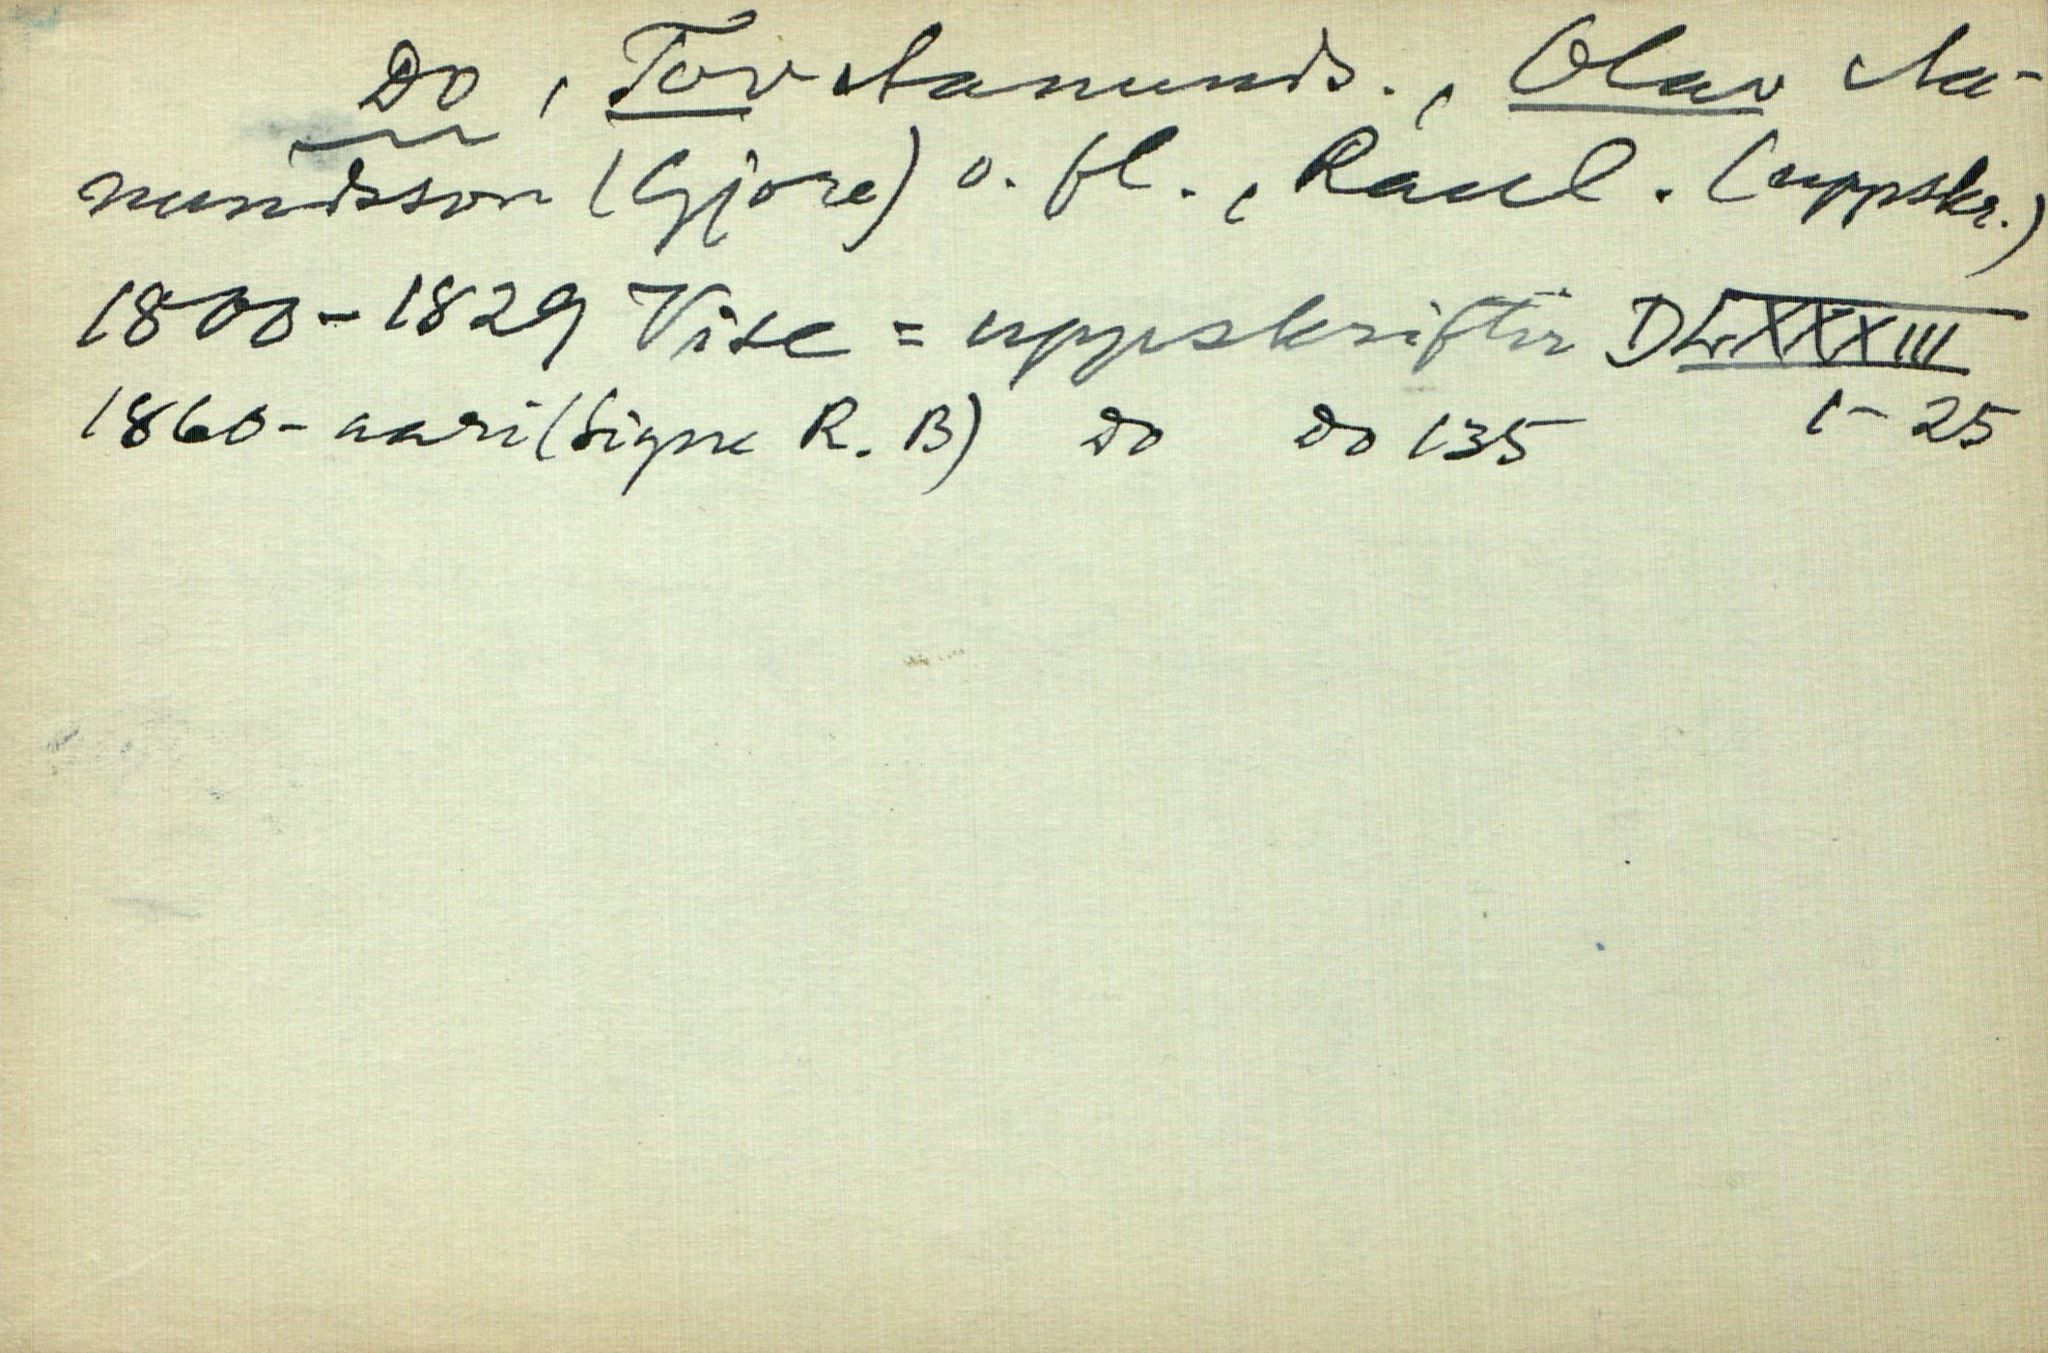 Do, Tov Aamunds., Olav Aa-
mundsson (Gjøre) o. fl., Raul. (uppskr.)
1800-1829 Vise=uppskriftir D LXXXIII
1860-aari (Signe R. B) do do 135 1-25